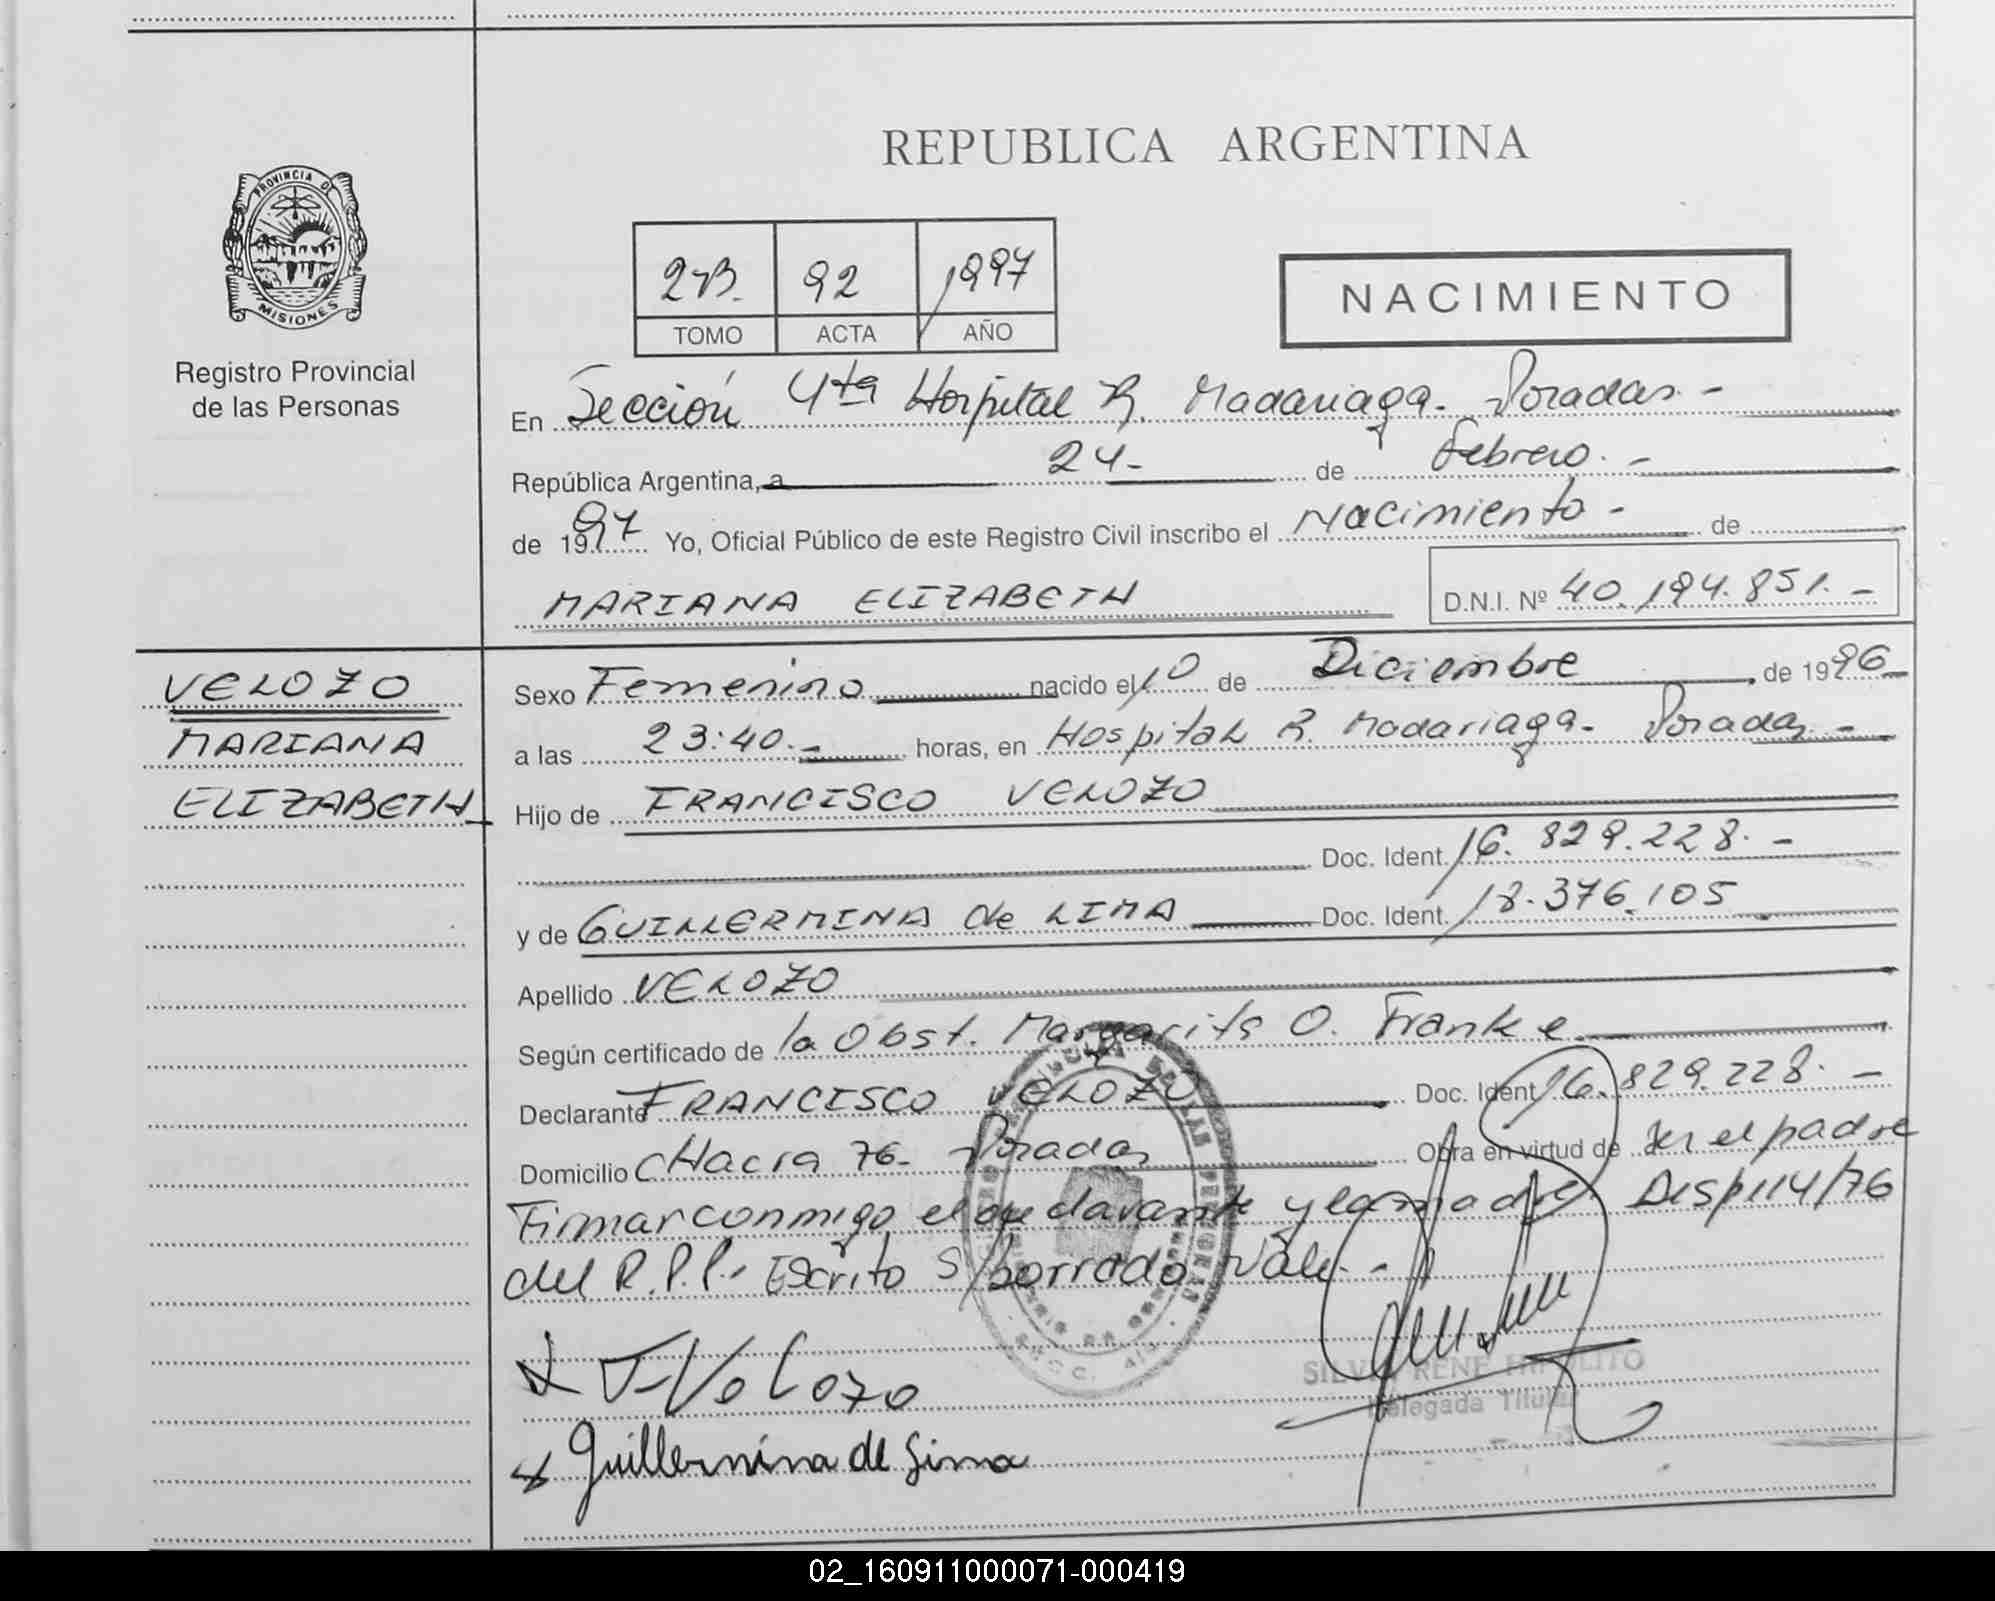 REPUBLICA ARGENTINA
PROVINCIA DE
MISIONES
Registro Provincial
de las Personas
2-B. 92 1997
TOMO ACTA AÑO
NACIMIENTO
En Sección 4ta Hospital R. Madariaga. Posadas.-
República Argentina, a 24- de Febrero.-
de 1997 Yo, Oficial Público de este Registro Civil inscribo el Nacimiento - de
MARIANA ELIZABETH D.N.I. Nº 40.194.851.-
VELOZO
MARIANA
ELIZABETH
Sexo Femenino nacido el 10 de Diciembre de 1996
a las 23:40.- horas, en Hospital R. Madariaga. Posadas.-
Hijo de FRANCISCO VELOZO
Doc. Ident. 16.829.228.-
y de GUILLERMINA de LIMA Doc. Ident. 18.376.105
Apellido VELOZO
Según certificado de la Obst. Margarita O. Franke
Declarante FRANCISCO VELOZO Doc. Ident. 16.829.228.-
Domicilio CHacra 76- Posadas Obra en virtud de ser el padre
Firmar conmigo el declarante y la madre Disp 114/76
del R.P.P.- Escrito S/borrado Vale.-
F. Velozo
Guillermina de Lima
SILVIA RENE HIPOLITO
Delegada Titular
02_160911000071-000419